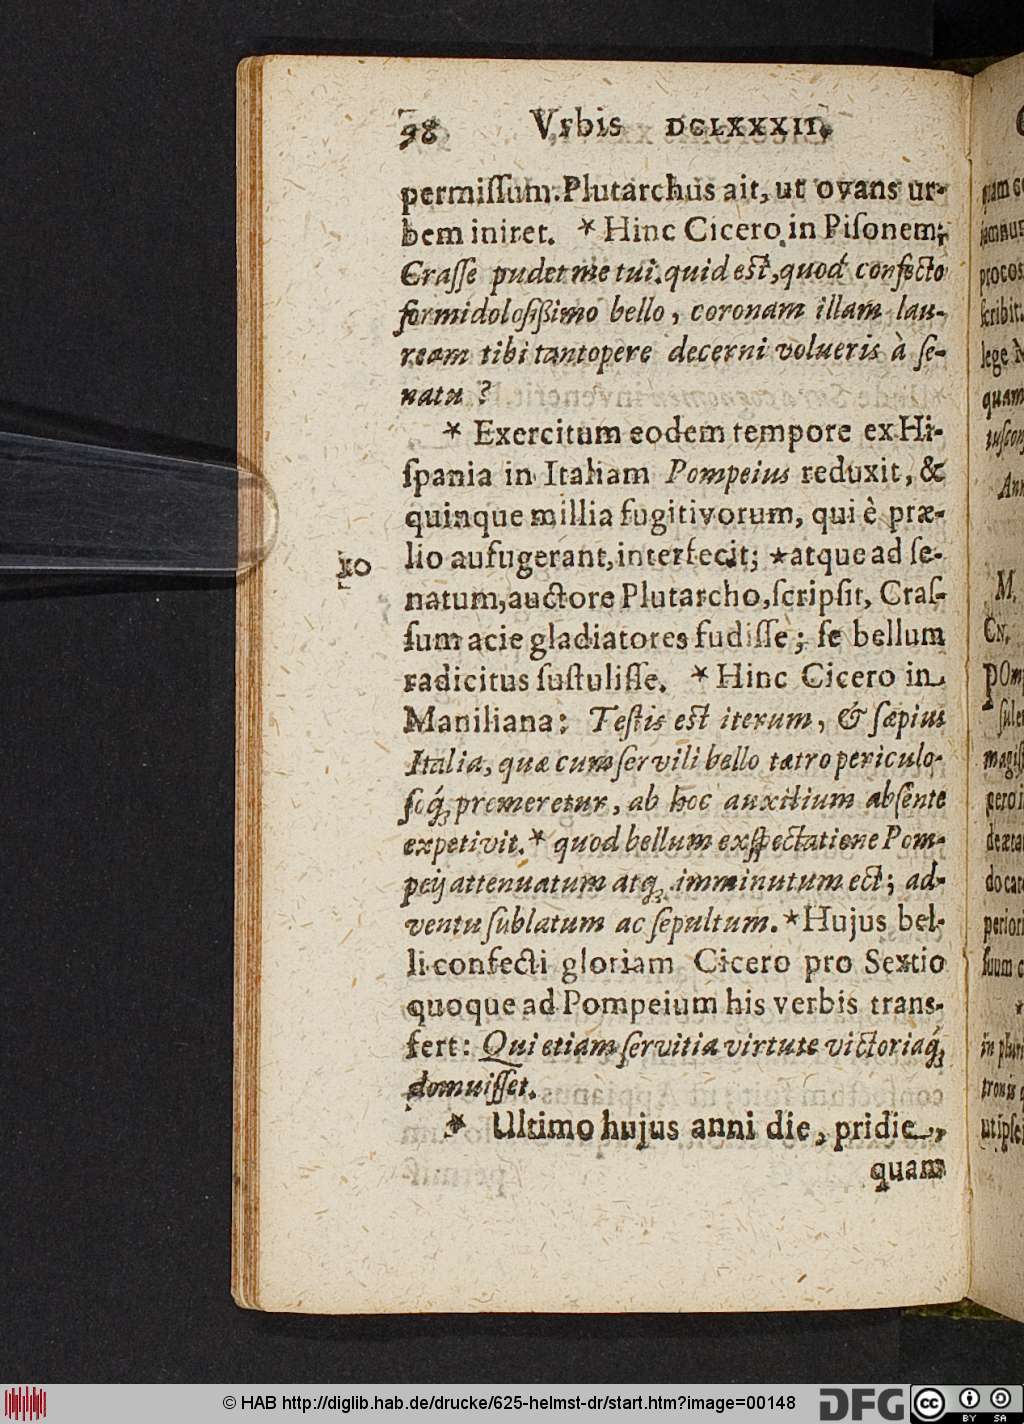 98 Vrbis DCLXXXII.
permiſſum. Plutarchus ait, ut ovans ur-
bem iniret. * Hinc Cicero in Piſonem;
Craſſe pudet me tui. quid est, quod confecto
formidoloſiſſimo bello, coronam illam lau-
ream tibi tantopere decerni volueris à ſe-
natu ?
* Exercitum eodem tempore ex Hi-
ſpania in Italiam Pompeius reduxit, &
quinque millia fugitivorum, qui è præ-
10 lio aufugerant, interfecit; * atque ad ſe-
natum, auctore Plutarcho, ſcripſit, Craſ-
ſum acie gladiatores fudiſſe; ſe bellum
radicitus ſuſtuliſſe. * Hinc Cicero in
Maniliana: Teſtis est iterum, & ſæpius
Italia, quæ cum ſervili bello tætro periculo-
ſoq́; premeretur, ab hoc auxilium abſente
expetivit. * quod bellum exſpectatione Pom-
peij attenuatum atq; imminutum est; ad-
ventu ſublatum ac ſepultum. * Hujus bel-
li confecti gloriam Cicero pro Sextio
quoque ad Pompeium his verbis trans-
fert: Qui etiam ſervitia virtute victoriaq́;
domuiſſet.
* Ultimo hujus anni die, pridie,
quam
M.
Cn.
© HAB http://diglib.hab.de/drucke/625-helmst-dr/start.htm?image=00148
DFG
cc
BY SA